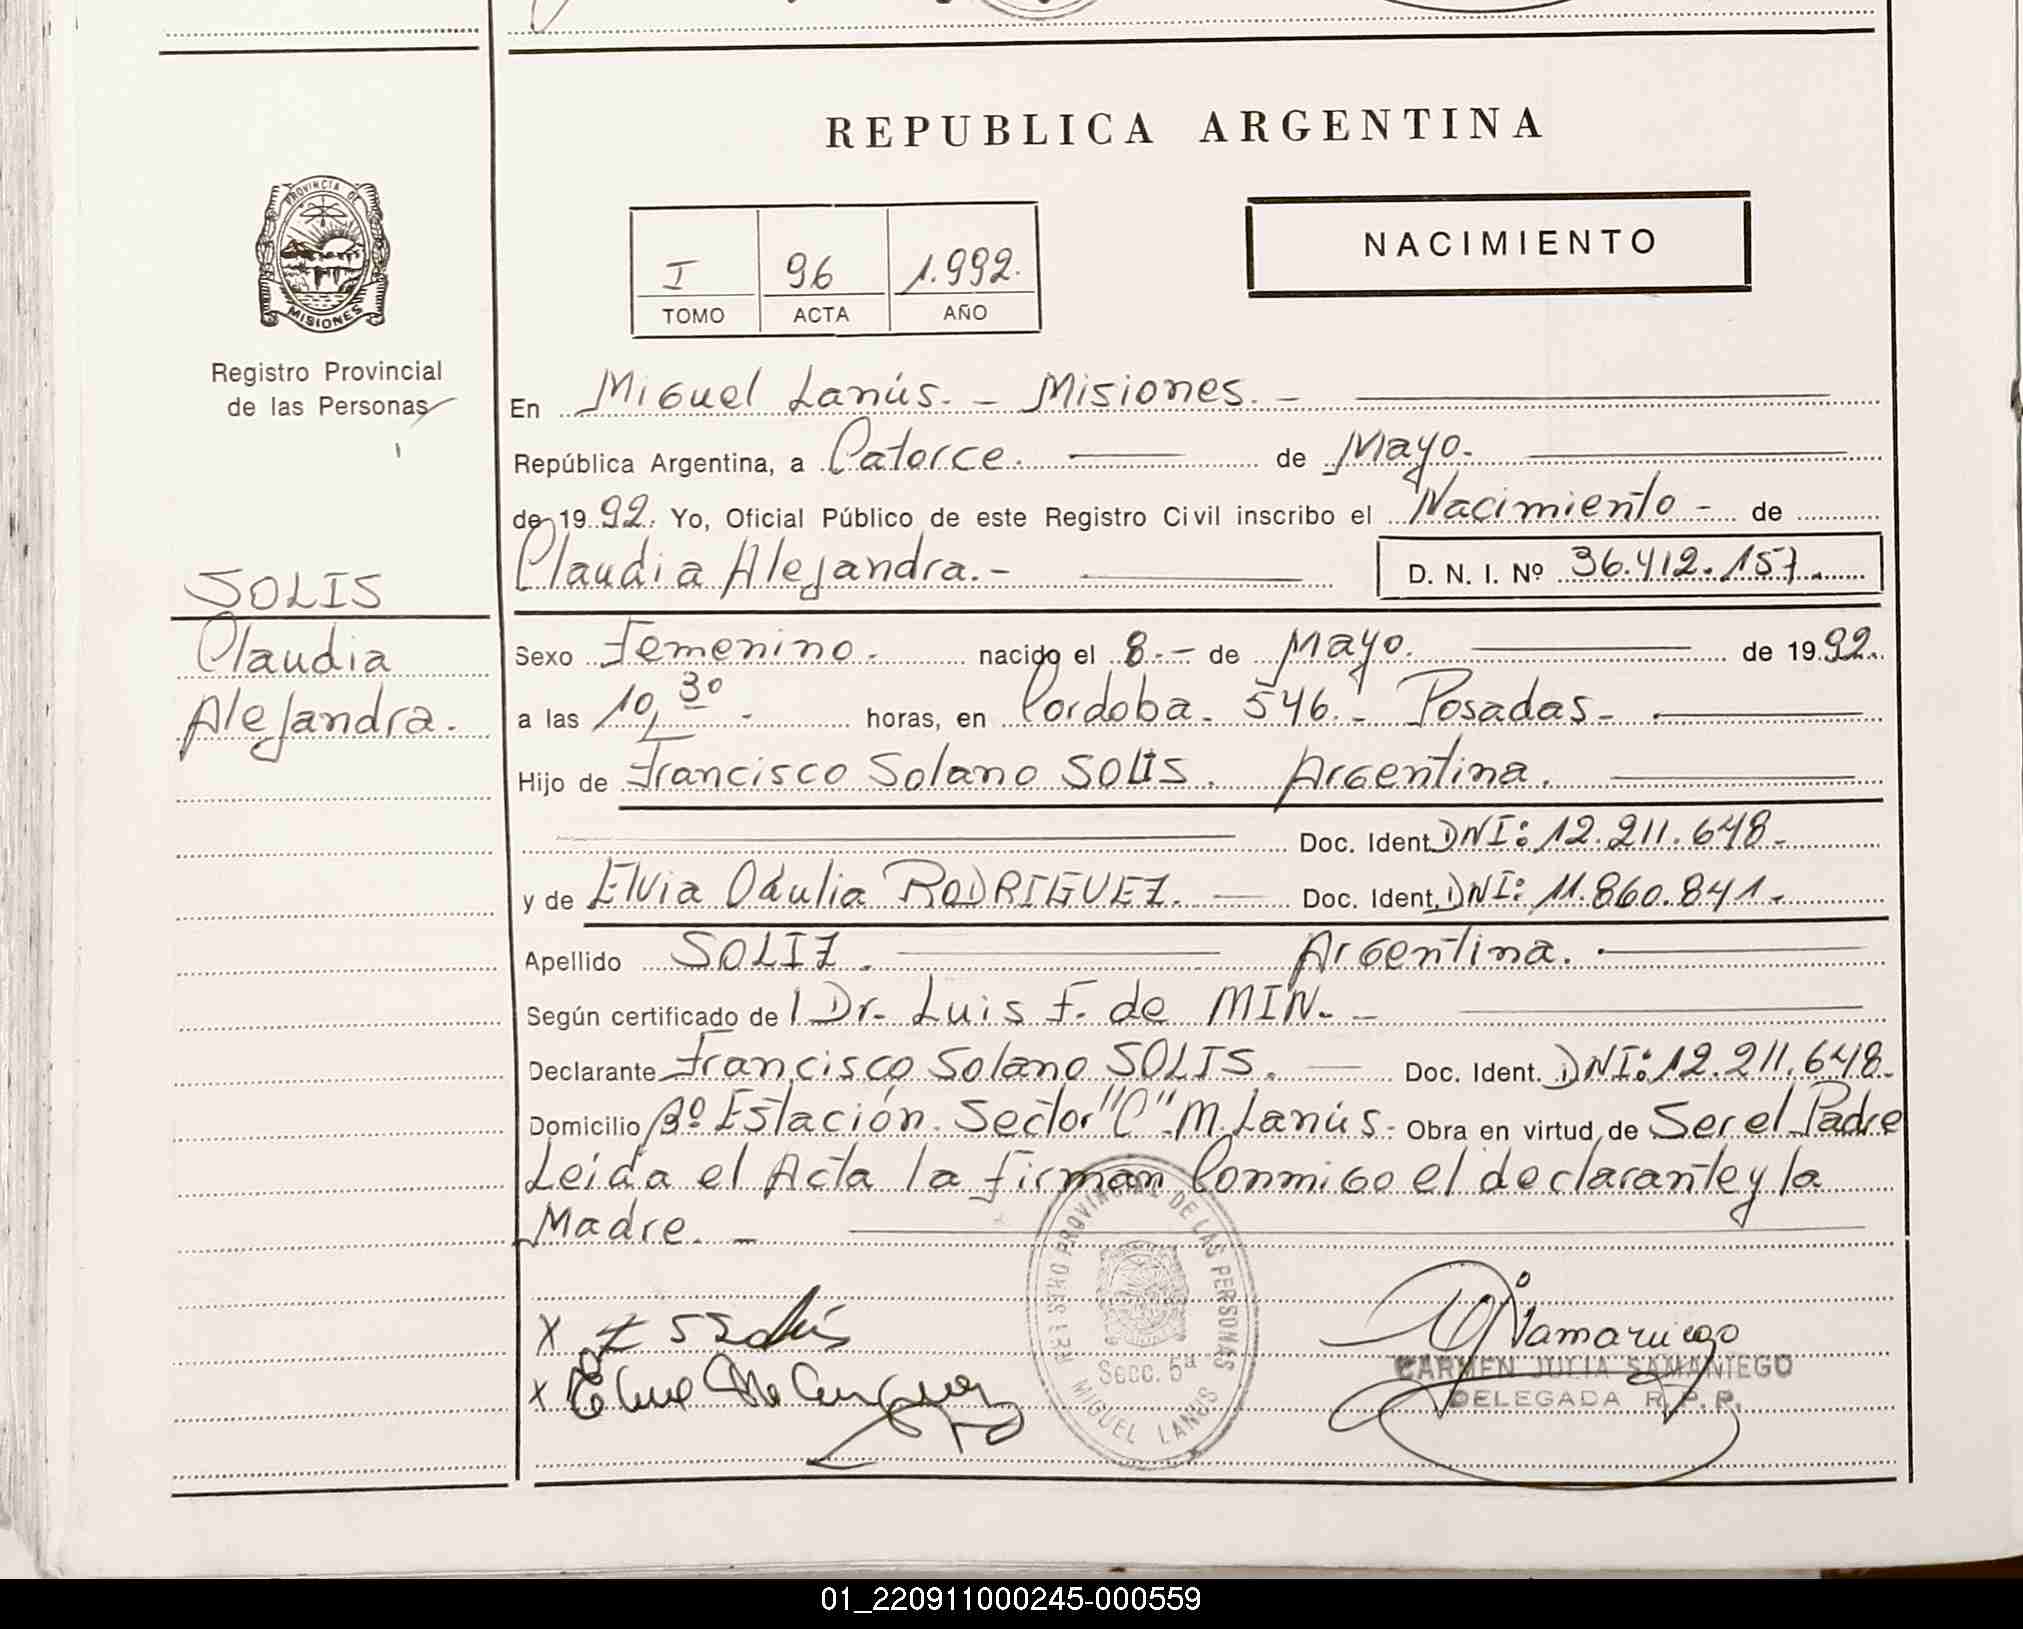 REPUBLICA ARGENTINA
PROVINCIA DE
MISIONES
Registro Provincial
de las Personas
I 96 1.992.
TOMO ACTA AÑO
NACIMIENTO
En Miguel Lanús. - Misiones. -
República Argentina, a Catorce. de Mayo.
de 19 92. Yo, Oficial Público de este Registro Civil inscribo el Nacimiento - de
Claudia Alejandra. - D. N. I. Nº 36.412.157.
SOLIS
Claudia
Alejandra.
Sexo Femenino. nacido el 8. - de Mayo. de 19 92.
a las 10,30 - horas, en Cordoba - 546. - Posadas -
Hijo de Francisco Solano SOLIS. Argentina.
Doc. Ident. DNI: 12.211.648.-
y de Elvia Odulia RODRIGUEZ. Doc. Ident. DNI: 11.860.841.-
Apellido SOLIZ. Argentina.
Según certificado de l Dr. Luis F. de MIN. -
Declarante Francisco Solano SOLIS. Doc. Ident. DNI: 12.211.648.
Domicilio Bº Estación. Sector "C". M. Lanús. Obra en virtud de Ser el Padre
Leida el Acta la firman Conmigo el declarante y la
Madre. -
REGISTRO PROVINCIAL DE LAS PERSONAS
Secc. 5ª
MIGUEL LANUS
X
X
CARMEN JULIA SAMANIEGO
DELEGADA R. P. P.
01_220911000245-000559